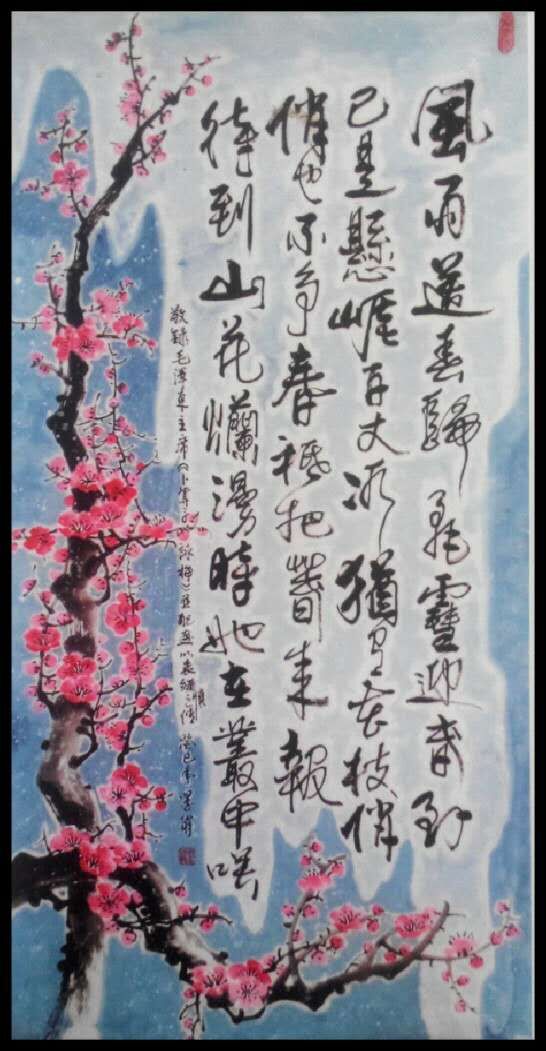 風雨送春歸飛雪迎春到
已是懸崖百丈冰猶有花枝俏
俏也不争春祗把春来報
待到山花爛漫時她在叢中笑
敬録毛澤東主席《卜算子咏梅》並配画以表緬之情 癸巳年